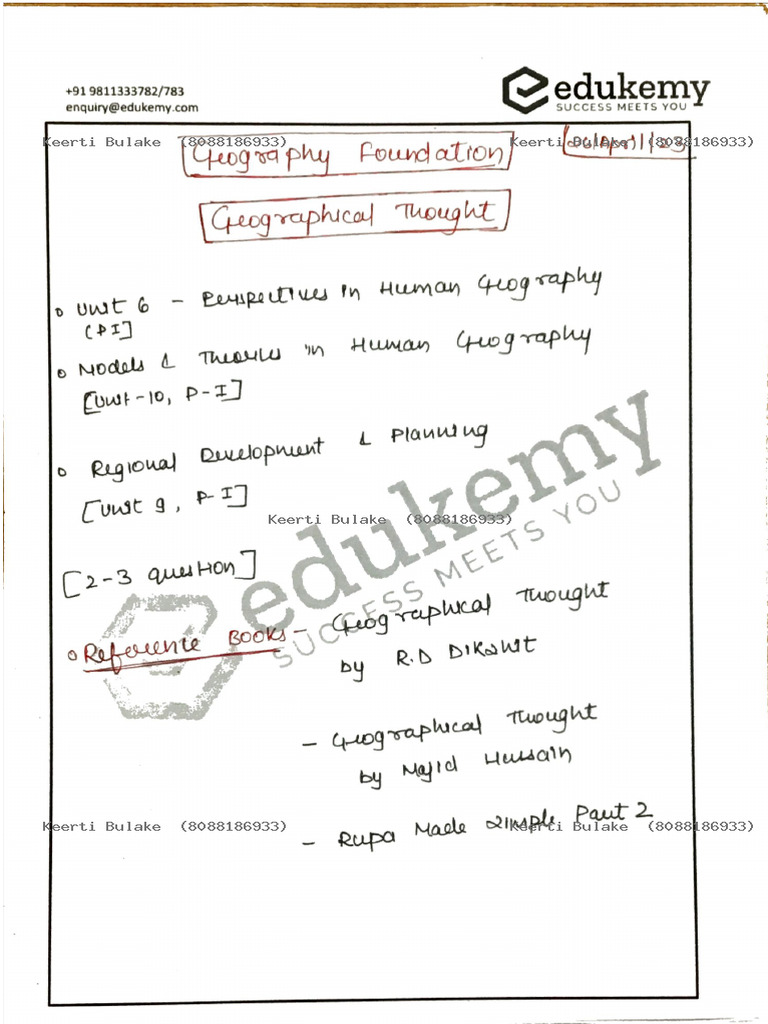 +91 9811333782/783
enquiry@edukemy.com
edukemy
SUCCESS MEETS YOU
Keerti Bulake (8088186933)
Keerti Bulake (8088186933)
Geography Foundation
Geographical Thought
Unit 6 - Perspectives in Human Geography
[P I]
Models & Theories in Human Geography
[Unit-10, P-I]
Regional Development & Planning
[Unit 9, P-I]
Keerti Bulake (8088186933)
edukemy
SUCCESS MEETS YOU
[2-3 question]
Reference Books - Geographical Thought
by R.D Dikshit
- Geographical Thought
by Majid Hussain
Keerti Bulake (8088186933)
Keerti Bulake (8088186933)
- Rupa Made Simple Part 2